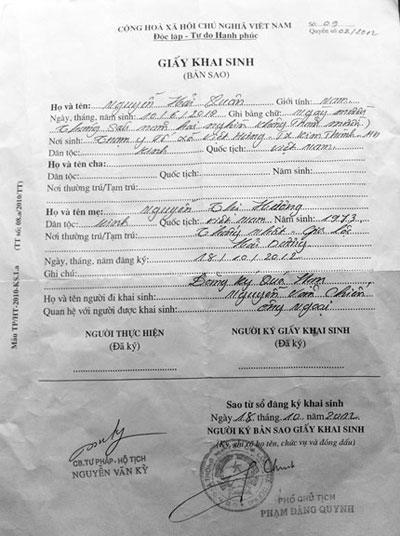 CỘNG HOÀ XÃ HỘI CHỦ NGHĨA VIỆT NAM
Độc lập - Tự do Hạnh phúc
Số: 09
Quyển số: 02/2012
GIẤY KHAI SINH
(BẢN SAO)
Họ và tên: Nguyễn Hải Quân Giới tính: Nam
Ngày, tháng, năm sinh: 10/6/2010 Ghi bằng chữ: Ngày mười
tháng sáu năm hai nghìn không trăm mười
Nơi sinh: Trạm y tế xã Việt Hưng, Kim Thành, HD
Dân tộc: Kinh Quốc tịch: Việt Nam
Họ và tên cha:
Dân tộc: Quốc tịch: Năm sinh:
Nơi thường trú/Tạm trú:
Họ và tên mẹ: Nguyễn Thị Hường
Dân tộc: Kinh Quốc tịch: Việt Nam Năm sinh: 1973
Nơi thường trú/Tạm trú: Thống Nhất, Gia Lộc
Hải Dương
Ngày, tháng, năm đăng ký: 18/10/2012
Ghi chú: Đăng ký Quá Hạn
Họ và tên người đi khai sinh: Nguyễn Văn
Quan hệ với người được khai sinh: Ông ngoại
NGƯỜI THỰC HIỆN NGƯỜI KÝ GIẤY KHAI SINH
(Đã ký) (Đã ký)
Sao từ sổ đăng ký khai sinh
Ngày 18 tháng 10 năm 2012
NGƯỜI KÝ BẢN SAO GIẤY KHAI SINH
(Ký, ghi rõ họ tên, chức vụ và đóng dấu)
CB.TƯ PHÁP - HỘ TỊCH
NGUYỄN VĂN KỲ
PHÓ CHỦ TỊCH
PHẠM ĐĂNG QUỲNH
Mẫu TP/HT-2010-KS.1.a
(TT số: 08.a/2010/TT)